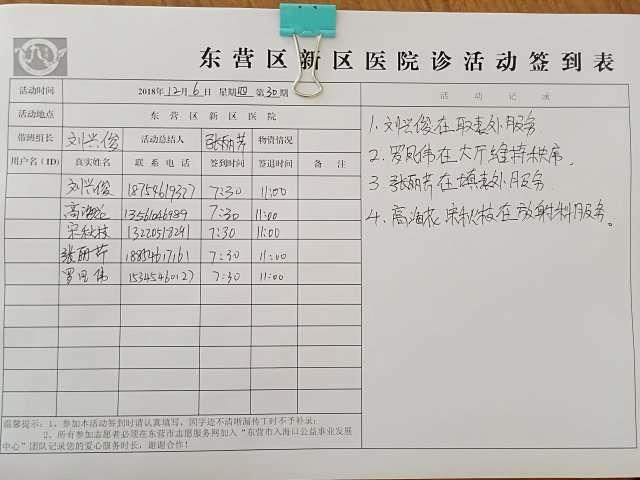 东营区新区医院诊活动签到表
活动时间 2018年12月6日 星期四 第30期
活动记录
活动地点 东营区新区医院
带班组长 刘兴俊 活动总结人 张丽芹 物资情况
用户名(ID) 真实姓名 联系电话 签到时间 签退时间 备注
刘兴俊 18754619327 7:30 11:00
高海花 13561046989 7:30 11:00
宋秋枝 13220518291 7:30 11:00
张丽芹 18854617161 7:30 11:00
罗凤伟 15345460127 7:30 11:00
1、刘兴俊在取表处服务
2、罗凤伟在大厅维持秩序。
3、张丽芹在填表处服务
4、高海花 宋秋枝在放射科服务。
温馨提示:1、参加本活动签到时请认真填写,因字迹不清晰漏传工时不予补录;
2、所有参加志愿者必须在东营市志愿服务网加入“东营市入海口公益事业发展
中心”团队记录您的爱心服务时长,谢谢合作!